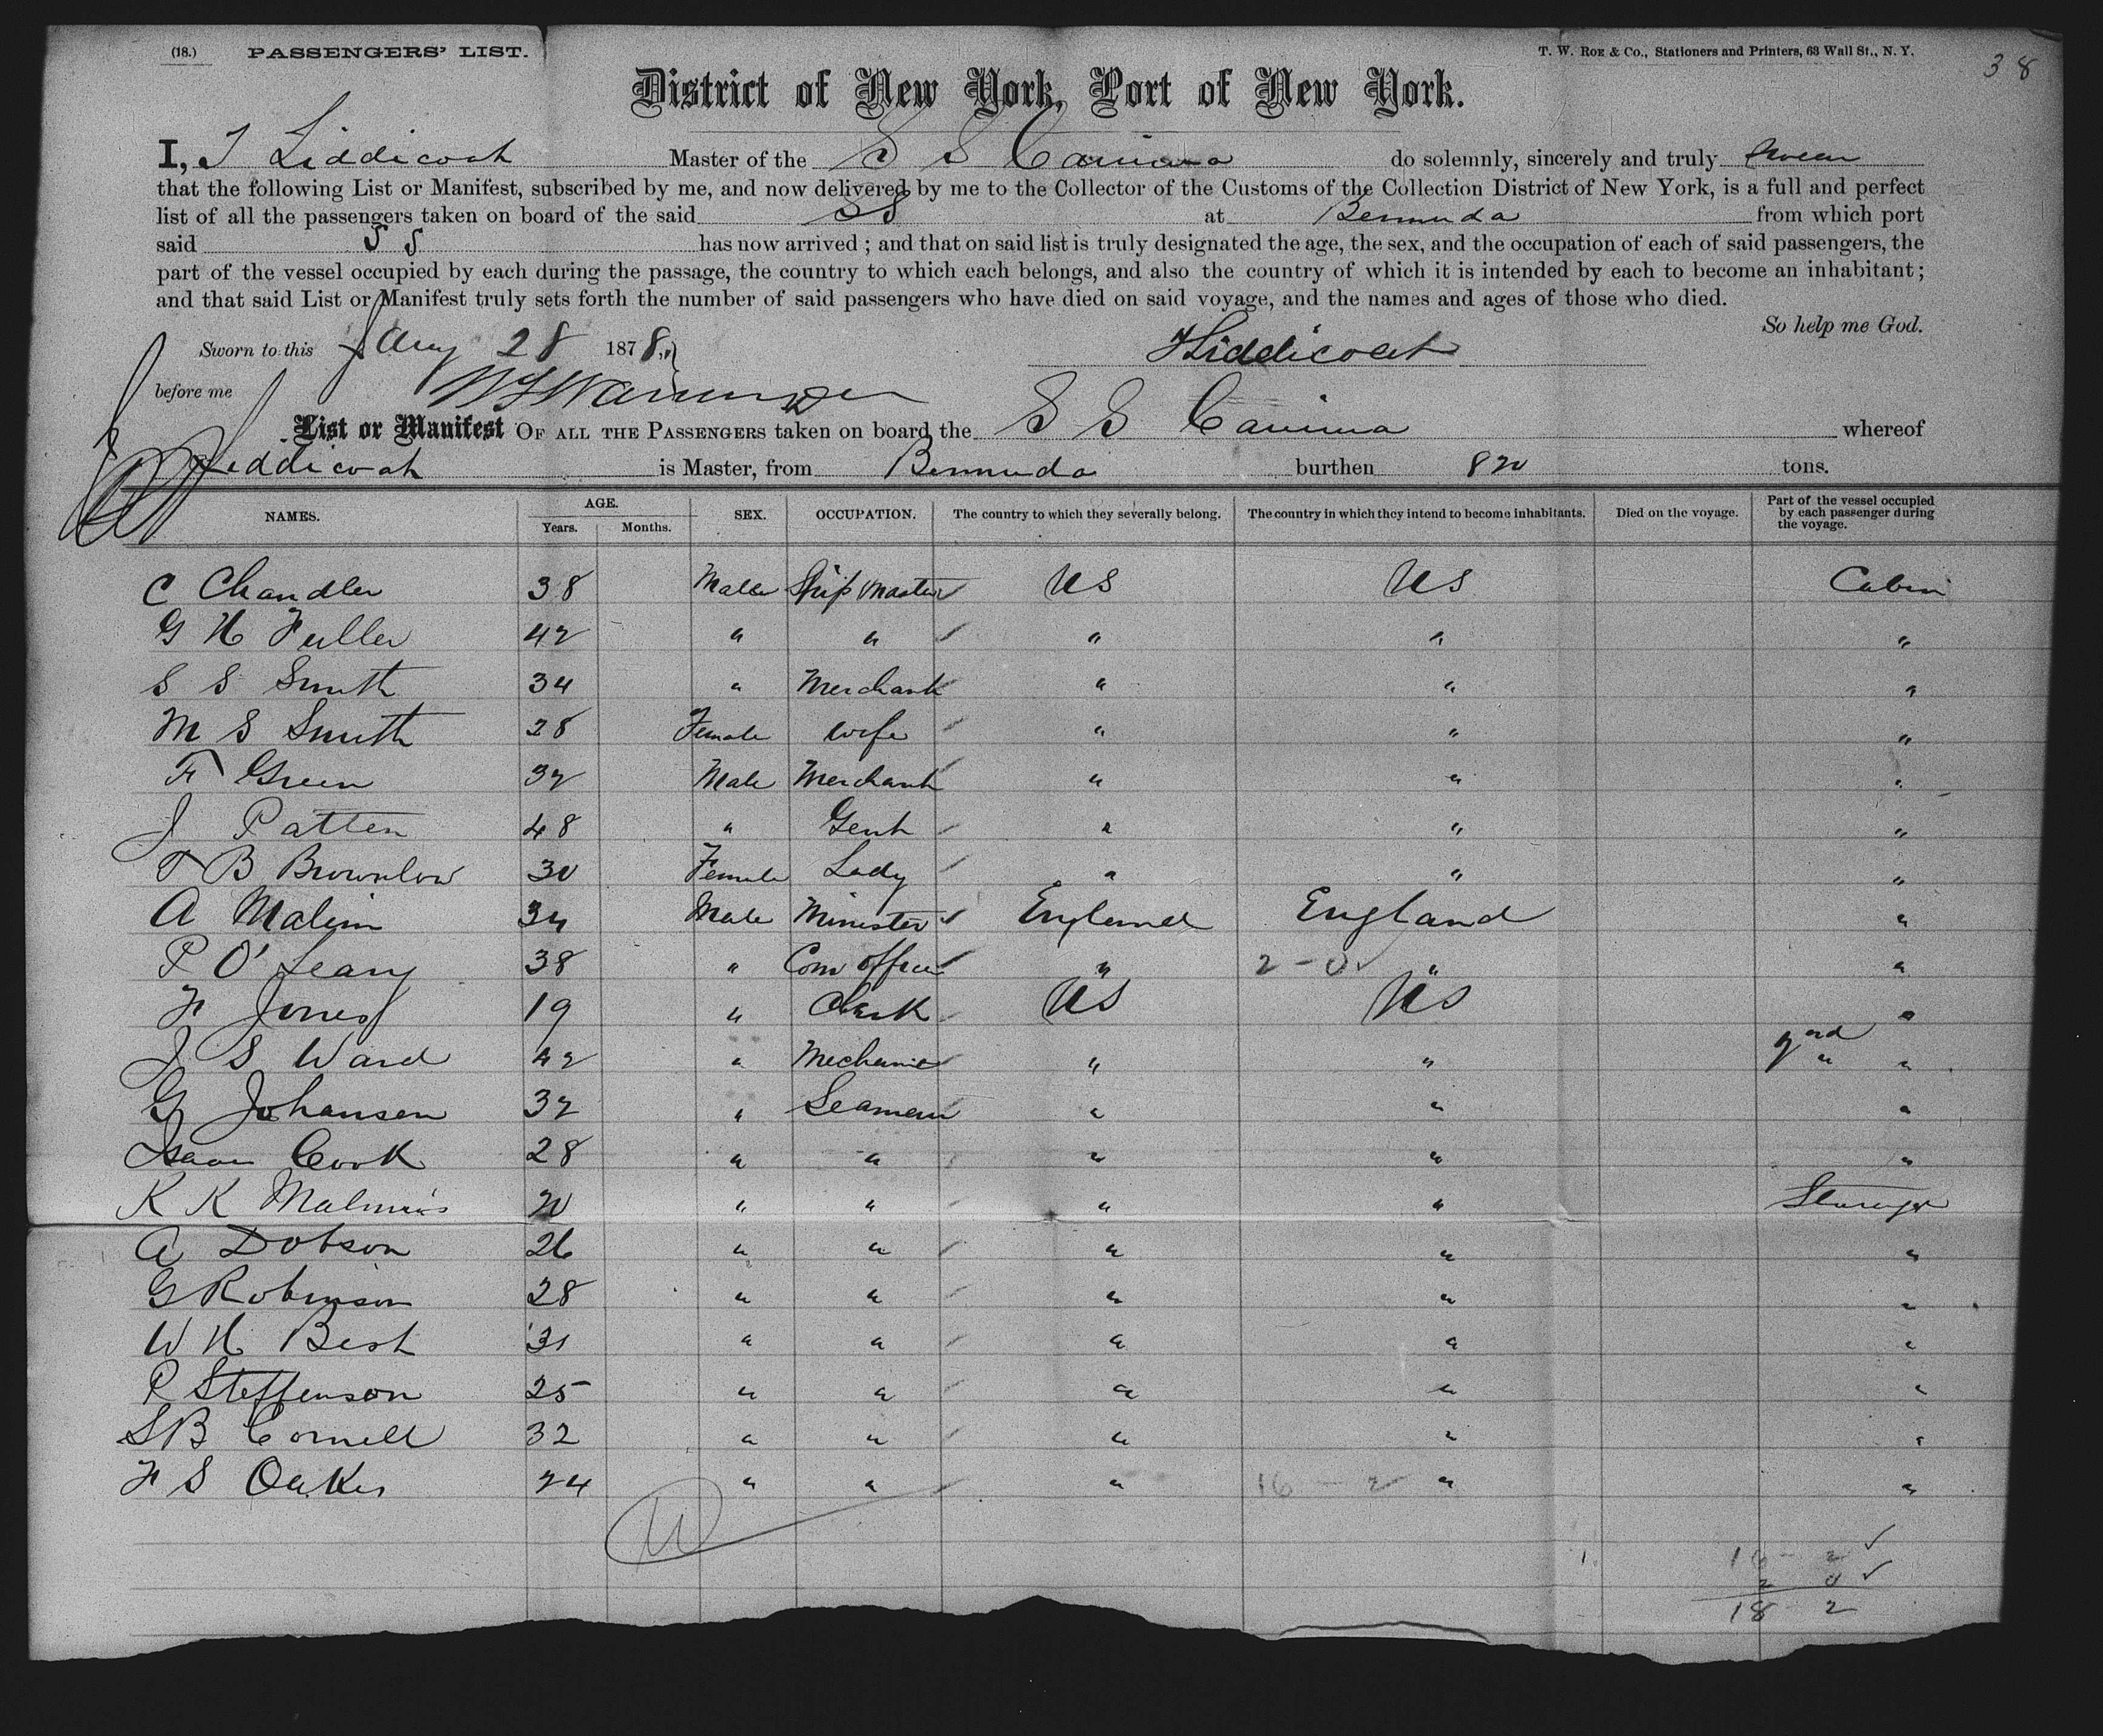 (18.) PASSENGERS' LIST. T. W. ROE & CO., Stationers and Printers, 63 Wall St., N. Y. 38
District of New York, Port of New York.
I, T Liddicoat Master of the S S Canima do solemnly, sincerely and truly Swear
that the following List or Manifest, subscribed by me, and now delivered by me to the Collector of the Customs of the Collection District of New York, is a full and perfect
list of all the passengers taken on board of the said SS at Bermuda from which port
said SS has now arrived ; and that on said list is truly designated the age, the sex, and the occupation of each of said passengers, the
part of the vessel occupied by each during the passage, the country to which each belongs, and also the country of which it is intended by each to become an inhabitant ;
and that said List or Manifest truly sets forth the number of said passengers who have died on said voyage, and the names and ages of those who died.
So help me God.
Sworn to this Jany 28 1878, Liddicoat
before me
List or Manifest OF ALL THE PASSENGERS taken on board the S S Canima whereof
Liddicoat is Master, from Bermuda burthen 820 tons.
NAMES. AGE. Years. Months. SEX. OCCUPATION. The country to which they severally belong. The country in which they intend to become inhabitants. Died on the voyage. Part of the vessel occupied by each passenger during the voyage.
C Chandler 38 Male Ship Master US US Cabin
G H Fuller 42 " " " " "
S S Smith 34 " Merchant " " "
M S Smith 28 Female Wife " " "
F Green 32 Male Merchant " " "
J Patten 48 " Gent " " "
T B Brownlow 30 Female Lady " " "
A Malim 34 Male Minister England England "
P O'Leary 38 " Com officer " 2 - 0 " "
F Jones 19 " Clerk US US "
J S Ward 42 " Mechanic " " 2nd " "
G Johansen 32 " Seaman " " "
Isaac Cook 28 " " " " "
K K Malmin's 20 " " " " Steerage
A Dobson 26 " " " " "
G Robinson 28 " " " " "
W H Best 31 " " " " "
P Steffenson 25 " " " " "
S B Cornell 32 " " " " "
F S Oakes 24 " " " 16 - 2 " "
16 - 2
2 0
18 - 2